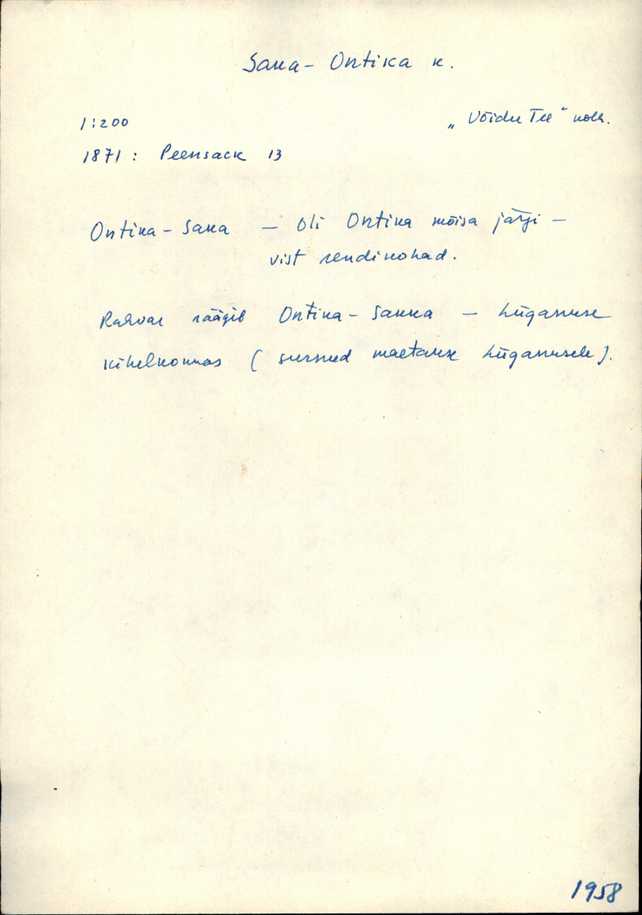 Saka - Ontika k.
1:200 „Võidu Tee“ kolh.
1871: Peensack 13
Ontika - Saka — oli Ontika mõisa järgi —
vist rendikohad.
Rahvas räägib Ontika - Sakka — Lüganuse
kihelkonnas (surnud maetakse Lüganusele).
1958